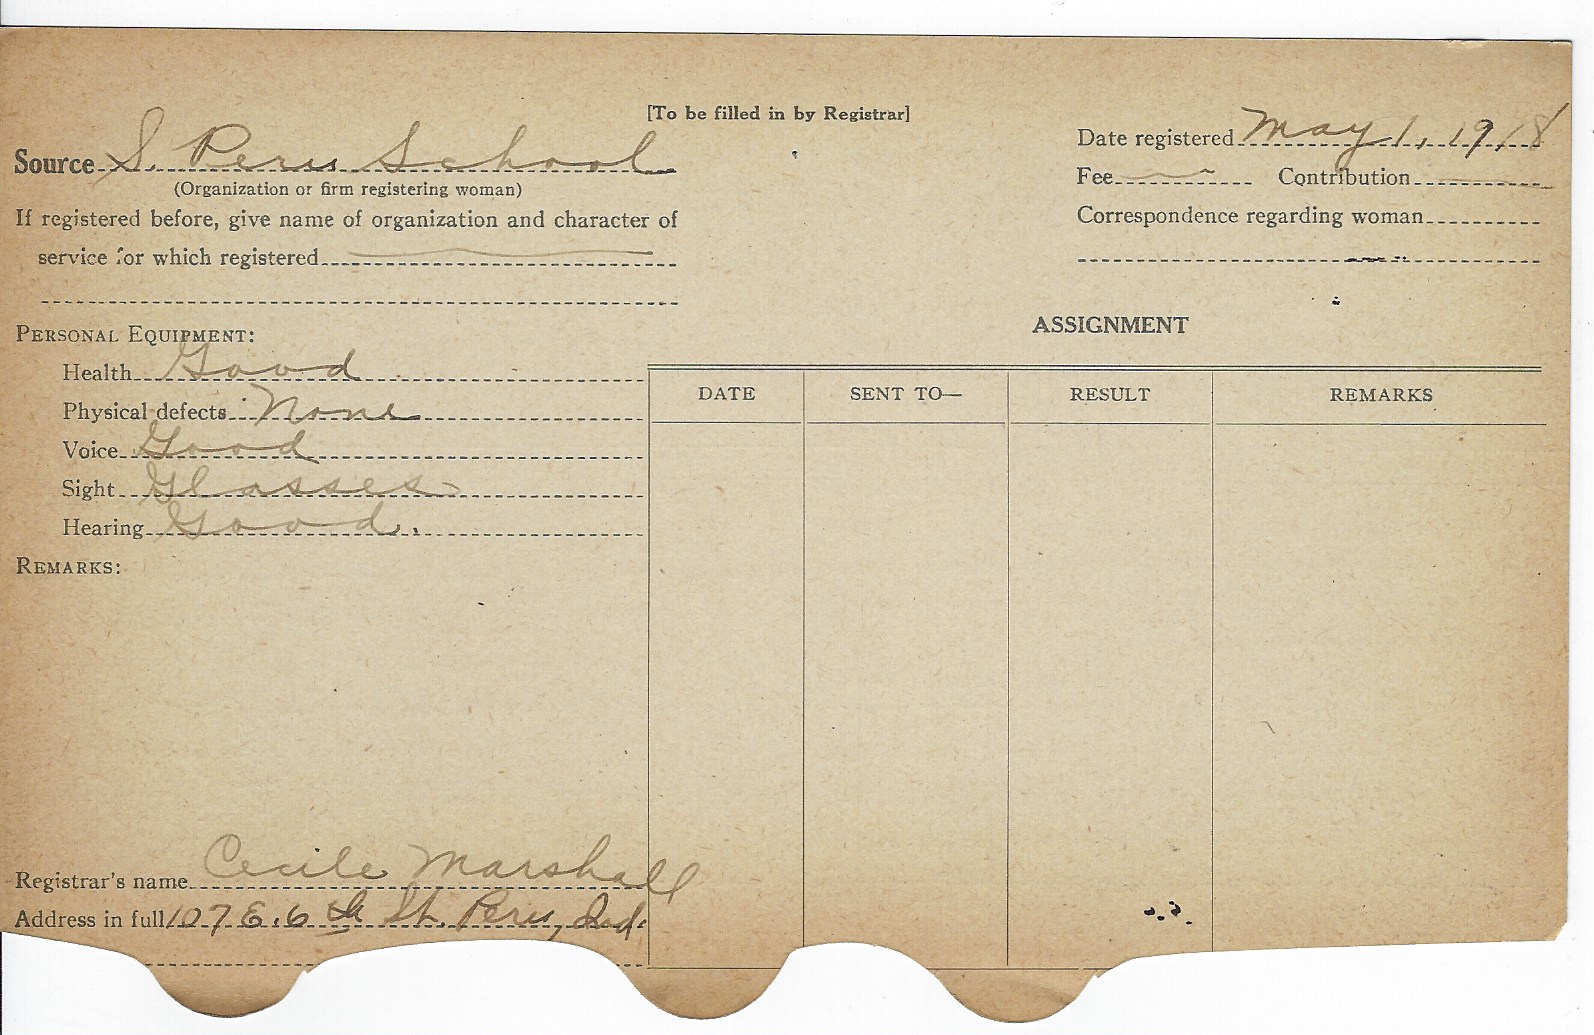 [To be filled in by Registrar]
Source S. Peru School
(Organization or firm registering woman)
If registered before, give name of organization and character of
service for which registered
Date registered May 1, 1918
Fee Contribution
Correspondence regarding woman
PERSONAL EQUIPMENT:
Health Good
Physical defects None
Voice Good
Sight Glasses
Hearing Good.
REMARKS:
ASSIGNMENT
DATE SENT TO— RESULT REMARKS
Registrar's name Cecile Marshall
Address in full 107 E. 6th St. Peru, Ind.